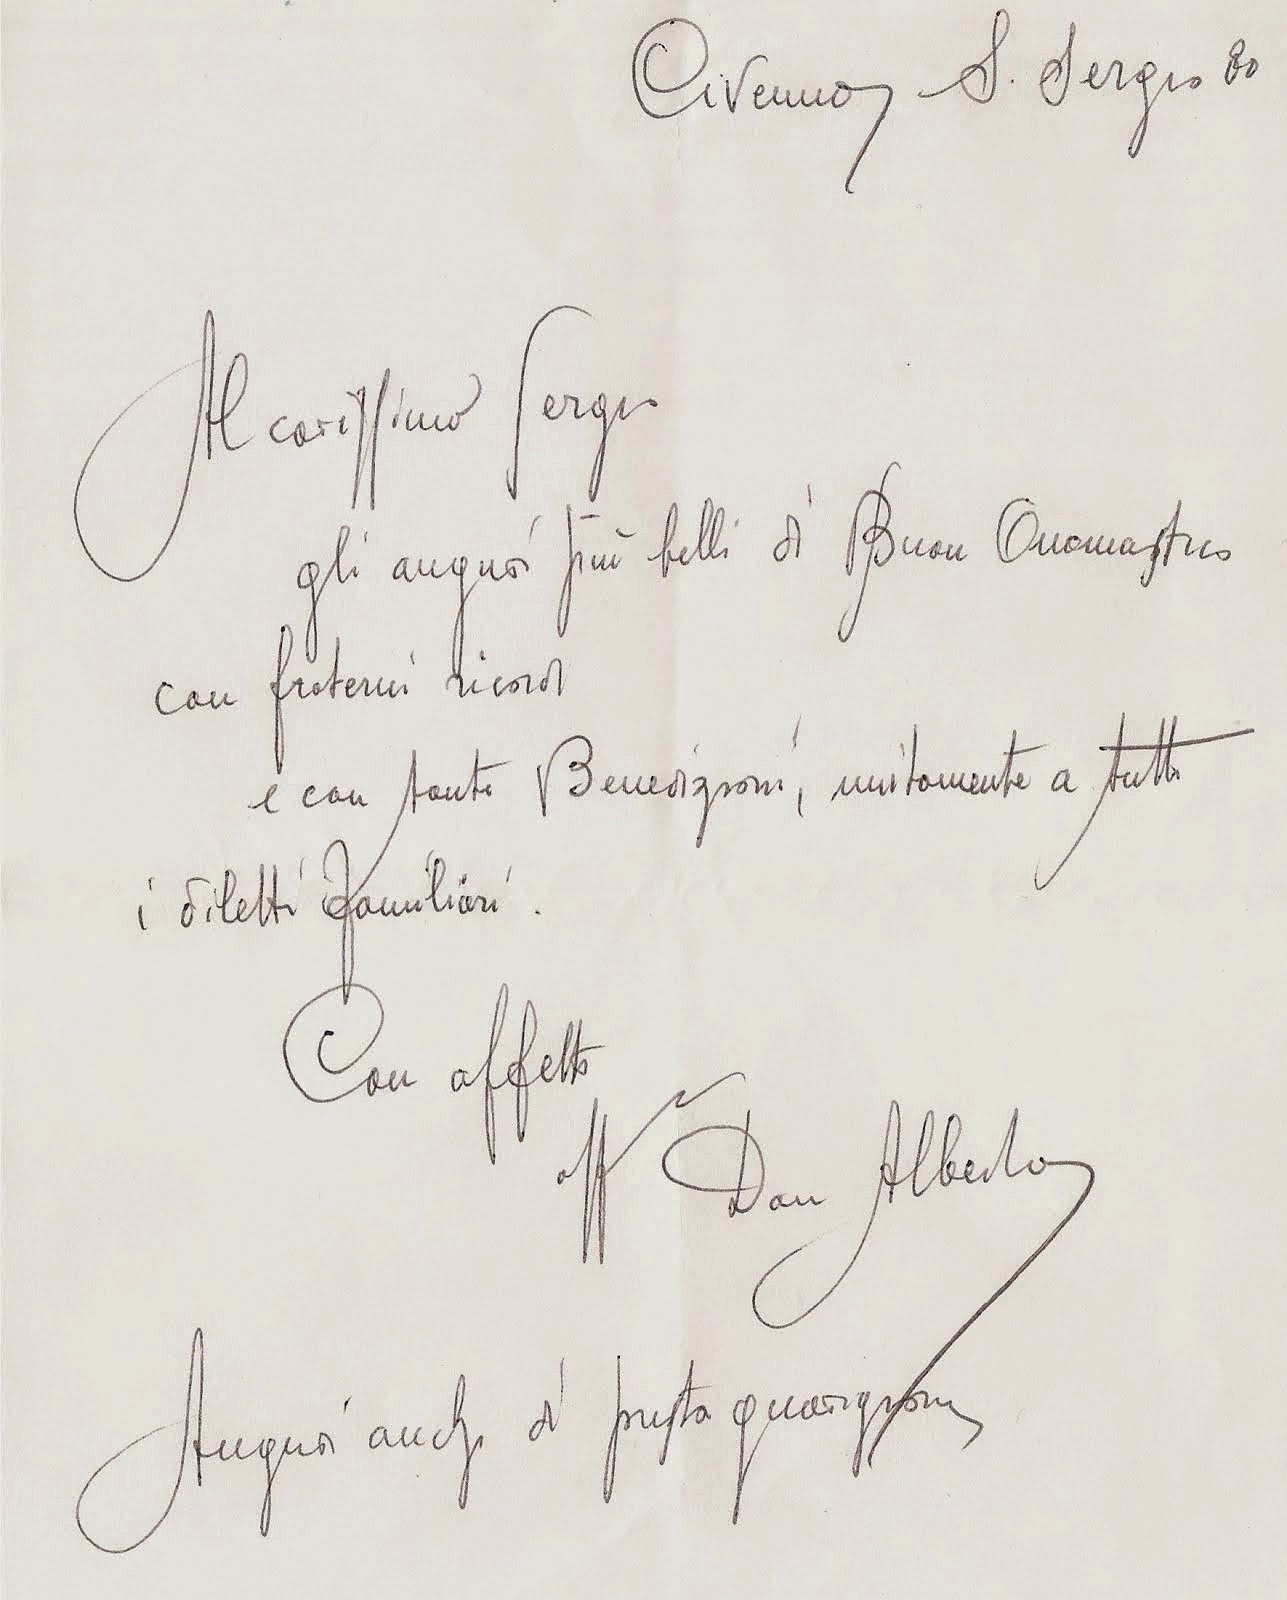 Civenna, S. Sergio 80
Al carissimo Sergio
gli auguri più belli di Buon Onomastico
con fraterni ricordi
e con tante Benedizioni, unitamente a tutti
i diletti familiari.
Con affetto
aff Don Alberto
Auguri anche di presta guarigione